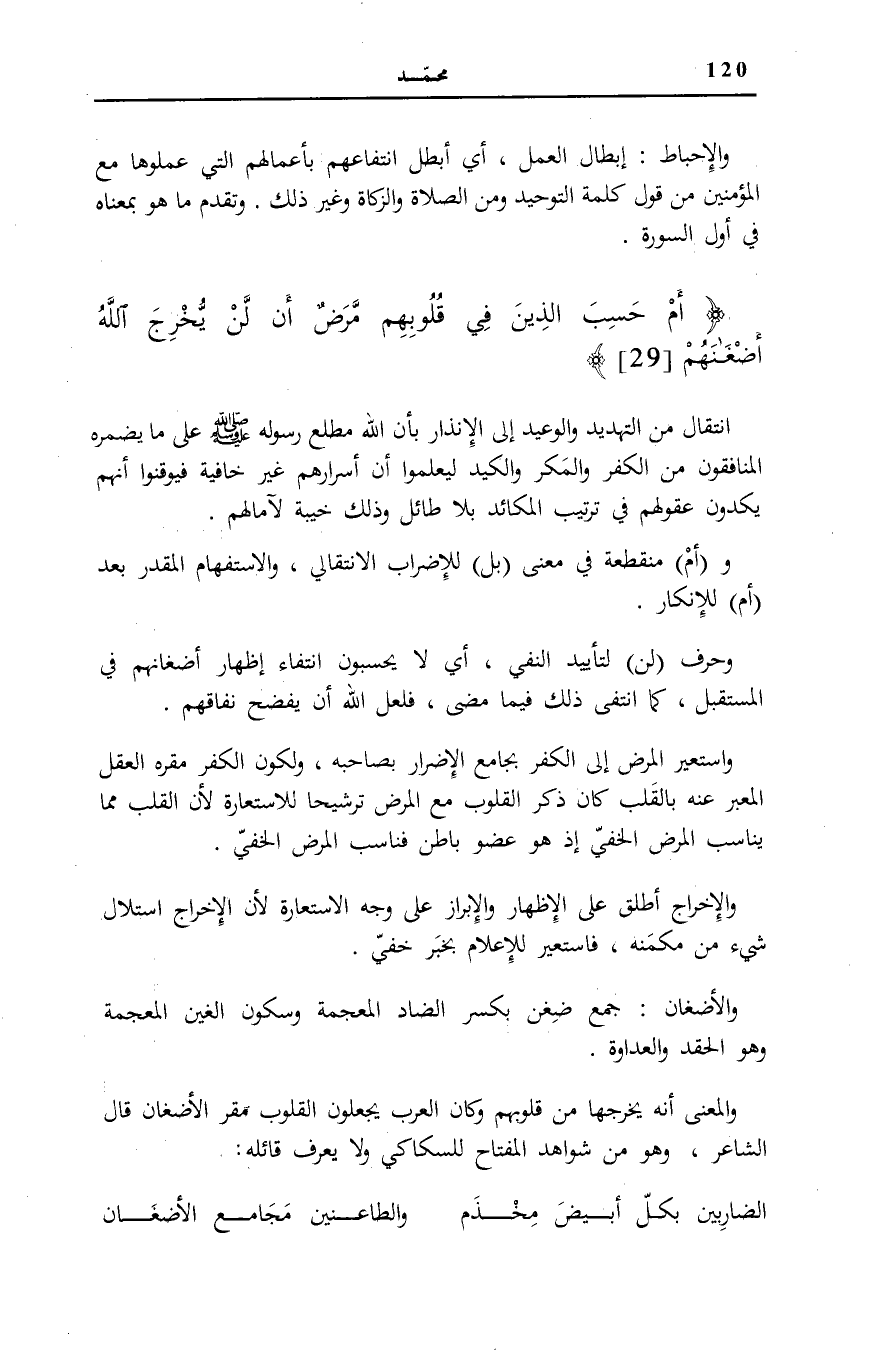 120
محمّـــد
والإحباط : إبطال العمل ، أي أبطل انتفاعهم بأعمالهم التي عملوها مع
المؤمنين من قول كلمة التوحيد ومن الصلاة والزكاة وغير ذلك . وتقدم ما هو بمعناه
في أول السورة .
﴿ أَمْ حَسِبَ الذِينَ فِي قُلُوبِهِم مَّرَضٌ أَن لَّنْ يُّخْرِجَ ٱللَّهُ
أَضْغَـٰنَهُمْ [29] ﴾
انتقال من التهديد والوعيد إلى الإنذار بأن الله مطلع رسوله ﷺ على ما يضمره
المنافقون من الكفر والمَكر والكيد ليعلموا أن أسرارهم غير خافية فيوقنوا أنهم
يكدون عقولهم في ترتيب المكائد بلا طائل وذلك خيبة لآمالهم .
و (أمْ) منقطعة في معنى (بل) للإضراب الانتقالي ، والاستفهام المقدر بعد
(أم) للإنكار .
وحرف (لن) لتأييد النفي ، أي لا يحسبون انتفاء إظهار أضغانهم في
المستقبل ، كما انتفى ذلك فيما مضى ، فلعل الله أن يفضح نفاقهم .
واستعير المرض إلى الكفر بجامع الإضرار بصاحبه ، ولكون الكفر مقره العقل
المعبر عنه بالقَلب كان ذكر القلوب مع المرض ترشيحا للاستعارة لأن القلب مما
يناسب المرض الخفيّ إذ هو عضو باطن فناسب المرض الخفيّ .
والإخراج أطلق على الإظهار والإبراز على وجه الاستعارة لأن الإخراج استلال
شيء من مكمَنه ، فاستعير للإعلام بخبَر خفيّ .
والأضغان : جمع ضِغن بكسر الضاد المعجمة وسكون الغين المعجمة
وهو الحقد والعداوة .
والمعنى أنه يخرجها من قلوبهم وكان العرب يجعلون القلوب مقر الأضغان قال
الشاعر ، وهو من شواهد المفتاح للسكاكي ولا يعرف قائله:
الضارِبين بكلّ أبـيضَ مِخْـذَم والطاعـنين مَجَامـع الأضغَـان